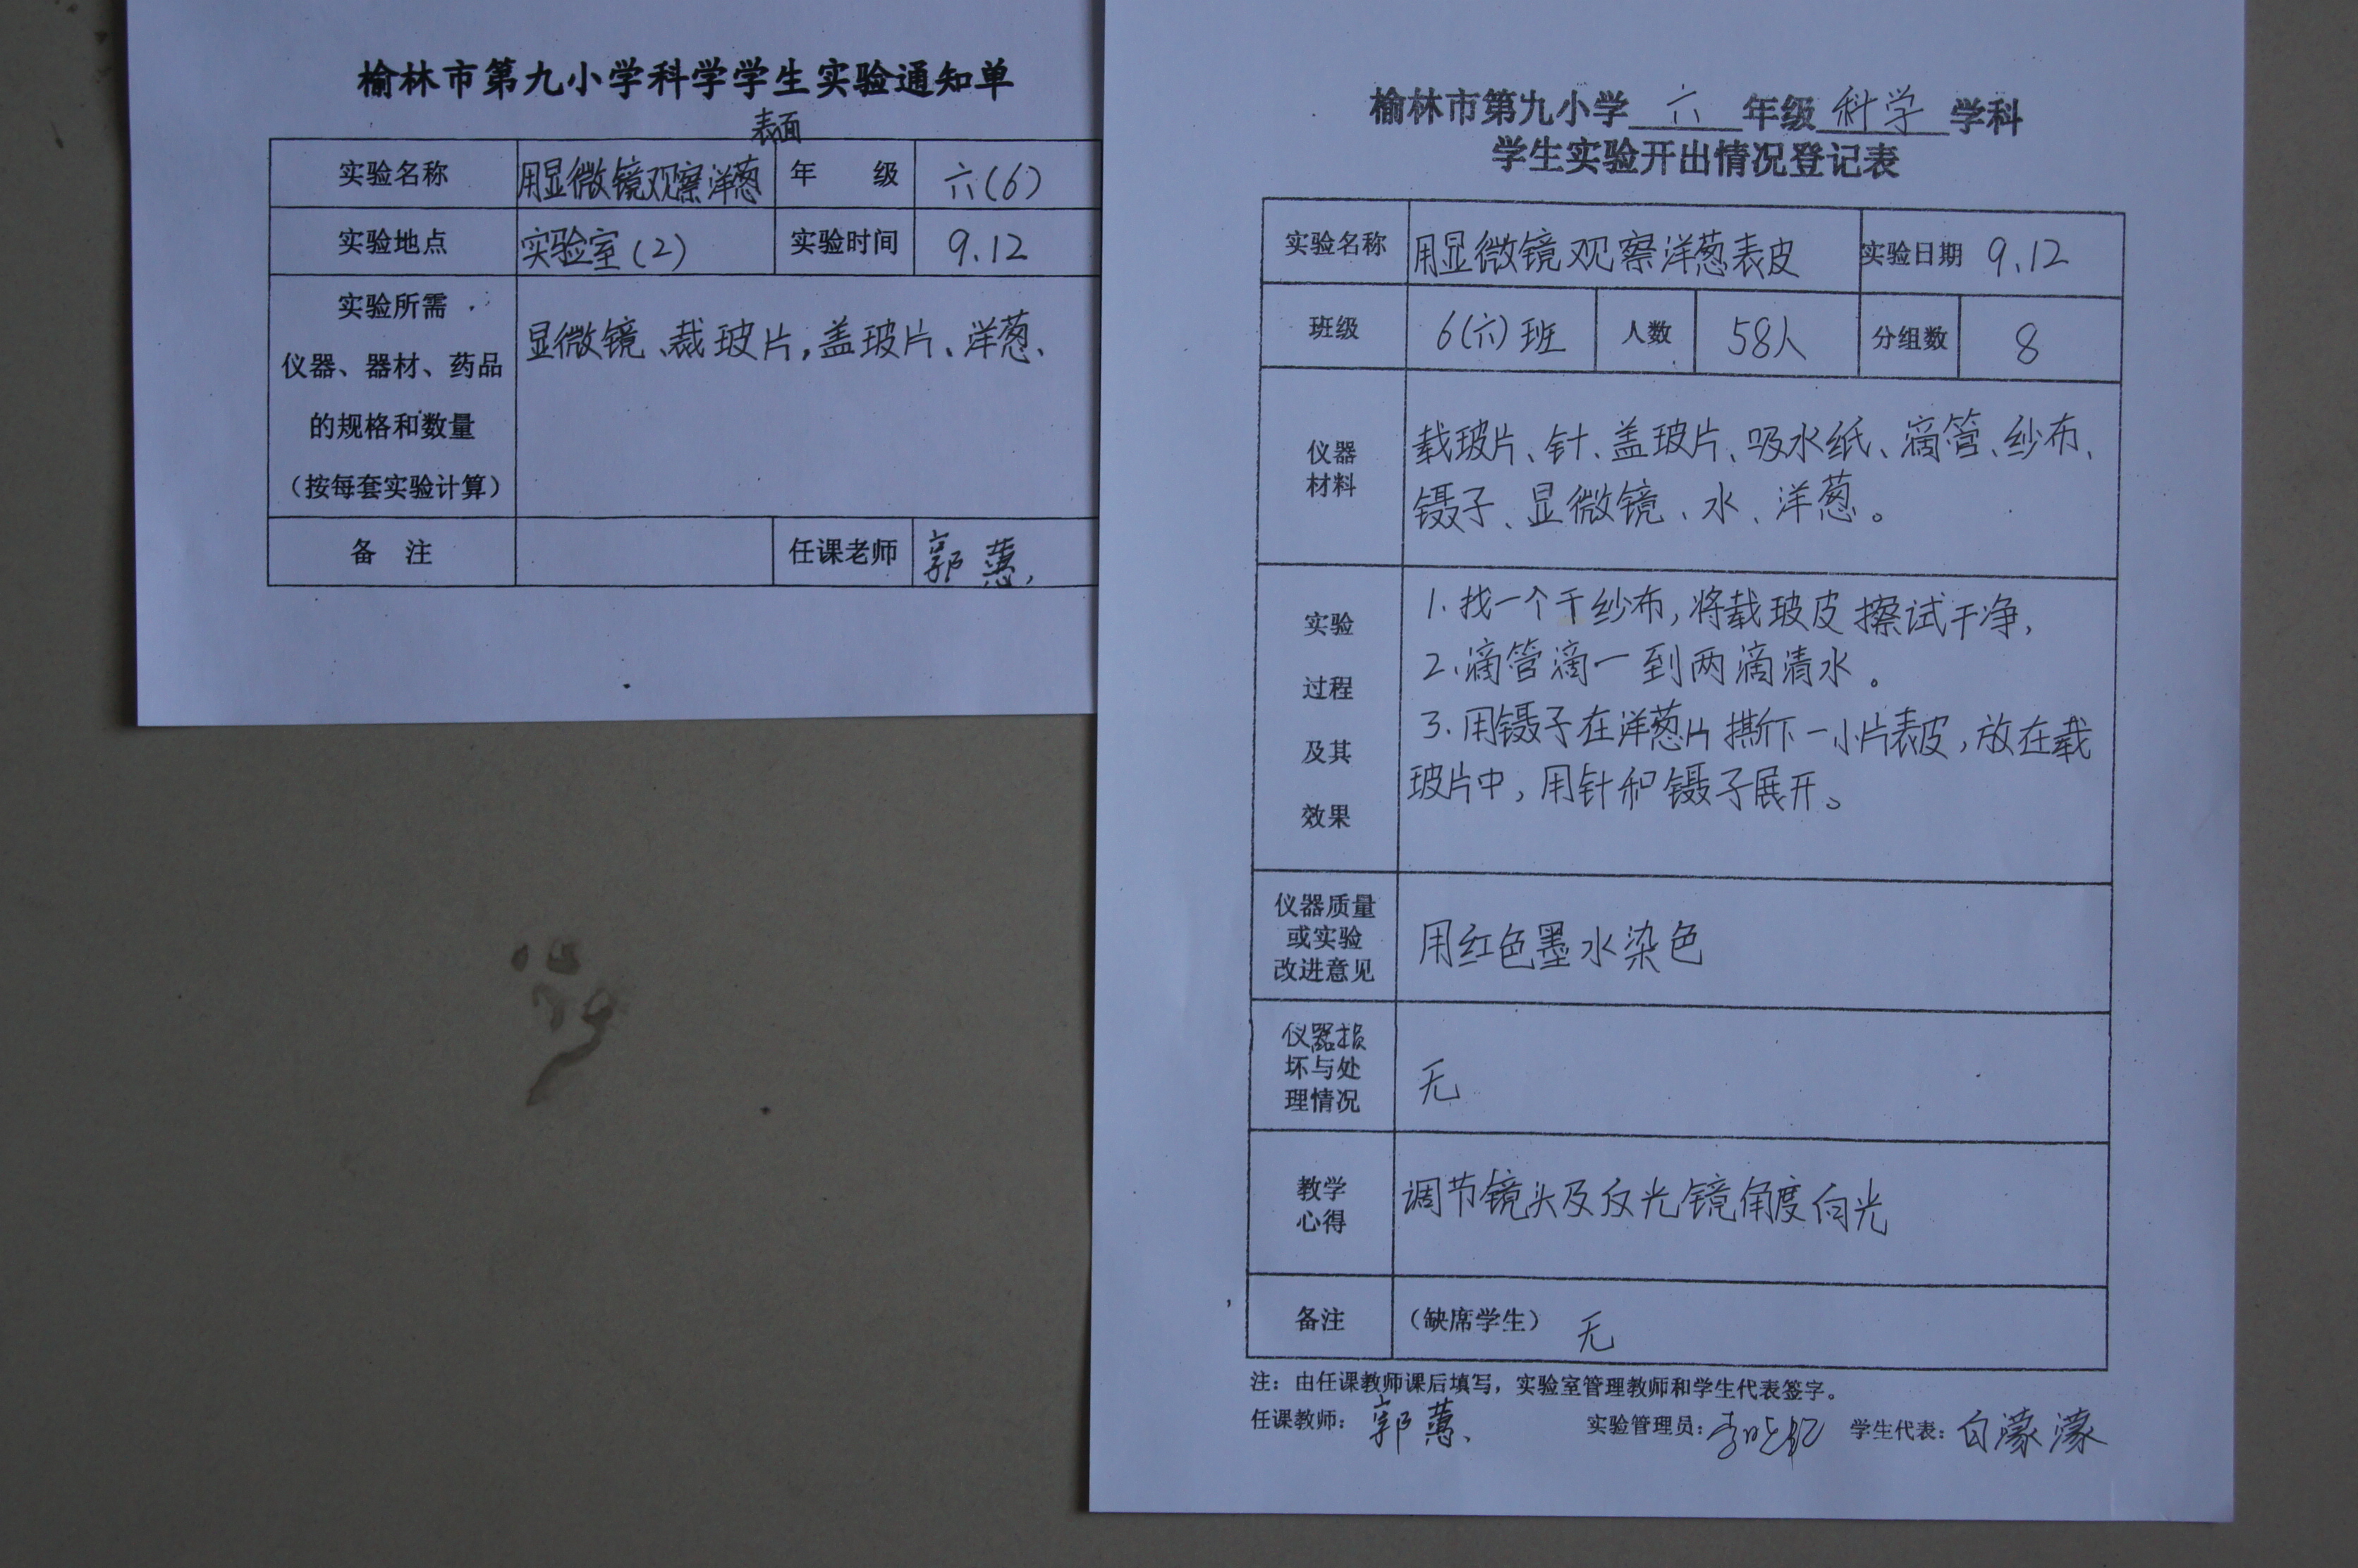 榆林市第九小学科学学生实验通知单
表面
实验名称 用显微镜观察洋葱 年 级 六(6)
实验地点 实验室(2) 实验时间 9.12
实验所需
仪器、器材、药品
的规格和数量
(按每套实验计算)
显微镜、裁玻片,盖玻片、洋葱、
备 注 任课老师 郭蕙
榆林市第九小学 六 年级 科学 学科
学生实验开出情况登记表
实验名称 用显微镜观察洋葱表皮 实验日期 9.12
班级 6(六)班 人数 58人 分组数 8
仪器
材料
载玻片、针、盖玻片、吸水纸、滴管、纱布、
镊子、显微镜、水、洋葱。
实验
过程
及其
效果
1.找一个干纱布,将载玻皮擦试干净,
2.滴管滴一到两滴清水。
3.用镊子在洋葱片撕下一小片表皮,放在载
玻片中,用针和镊子展开。
仪器质量
或实验
改进意见
用红色墨水染色
仪器损
坏与处
理情况
无
教学
心得
调节镜头及反光镜角度向光
备注 (缺席学生) 无
注:由任课教师课后填写,实验室管理教师和学生代表签字。
任课教师: 郭蕙、 实验管理员: 学生代表: 白濛濛